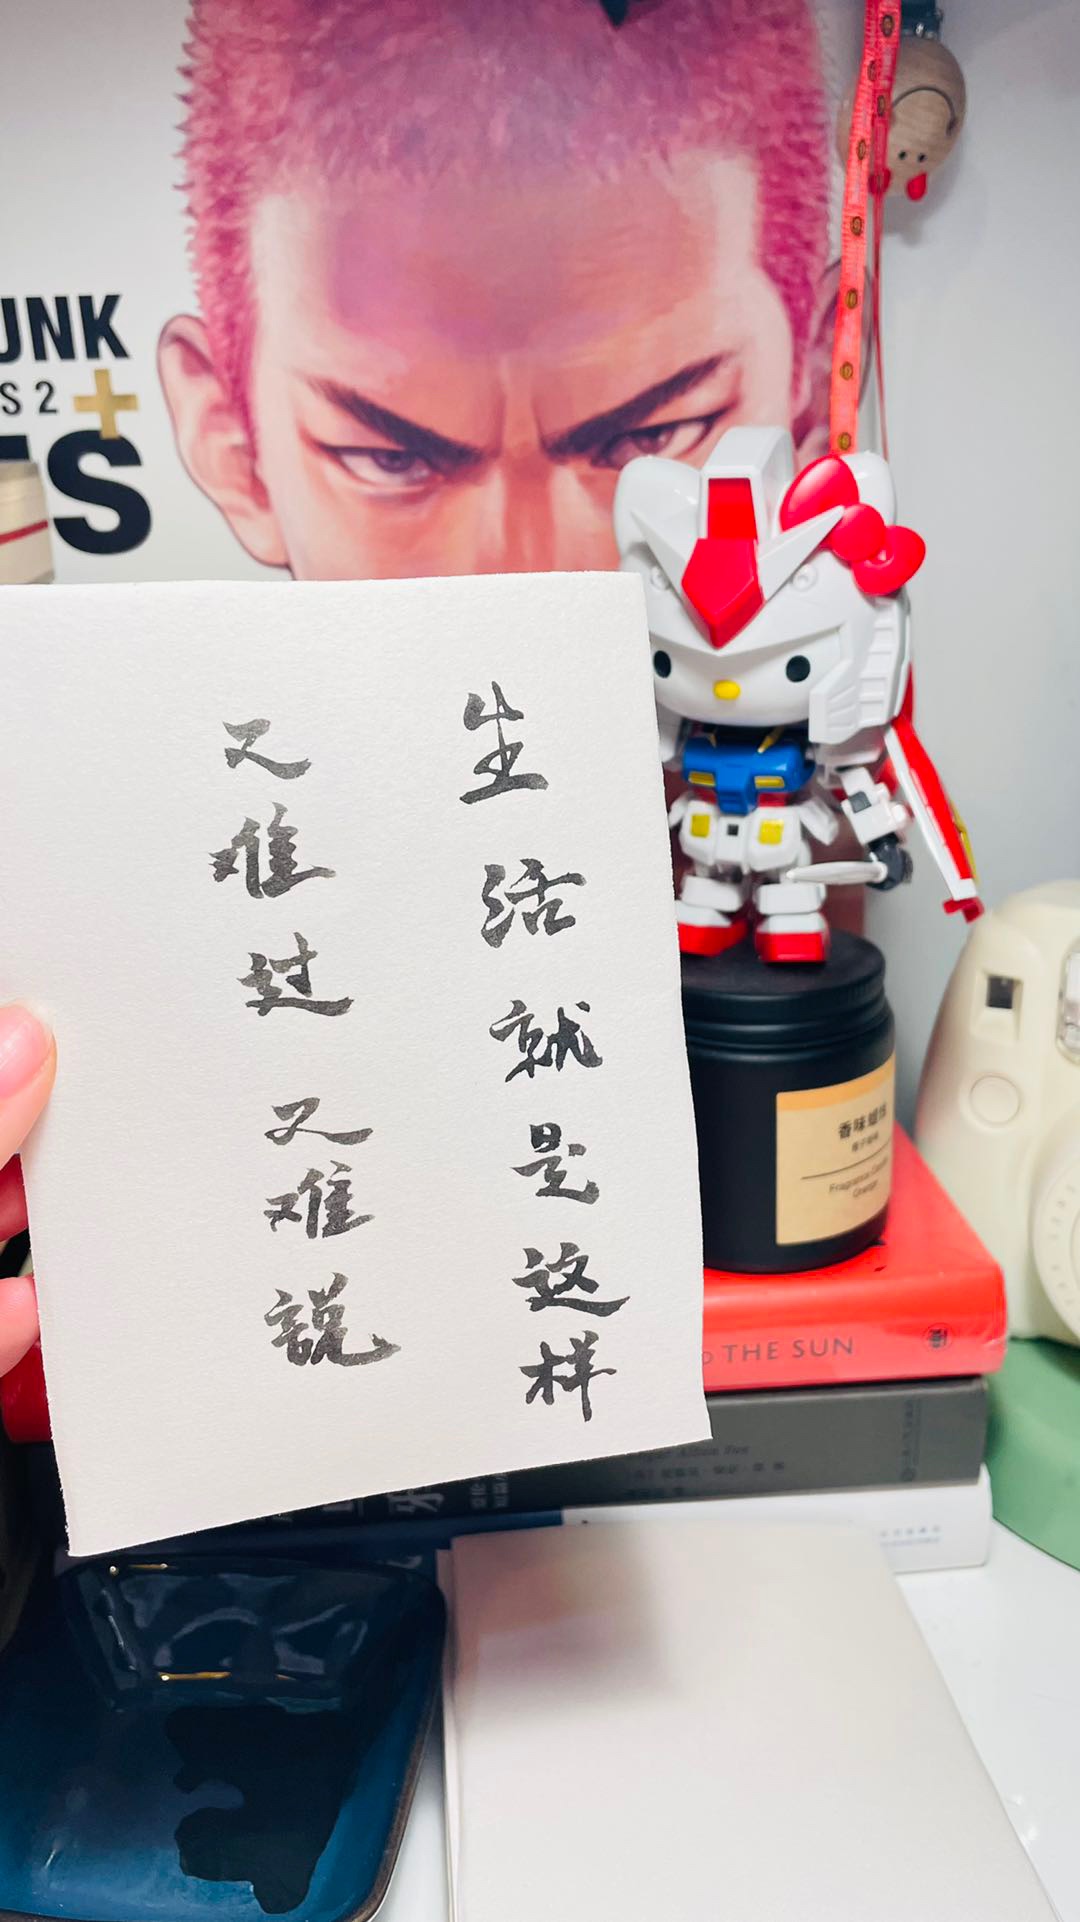 生活就是这样
又难过又难説
UNK
S2
ES
香味蜡烛
THE SUN